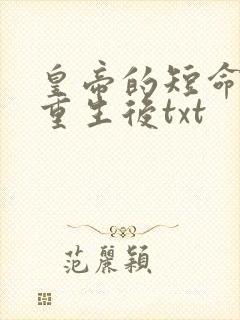 皇帝的短命
重生後txt
范麗穎